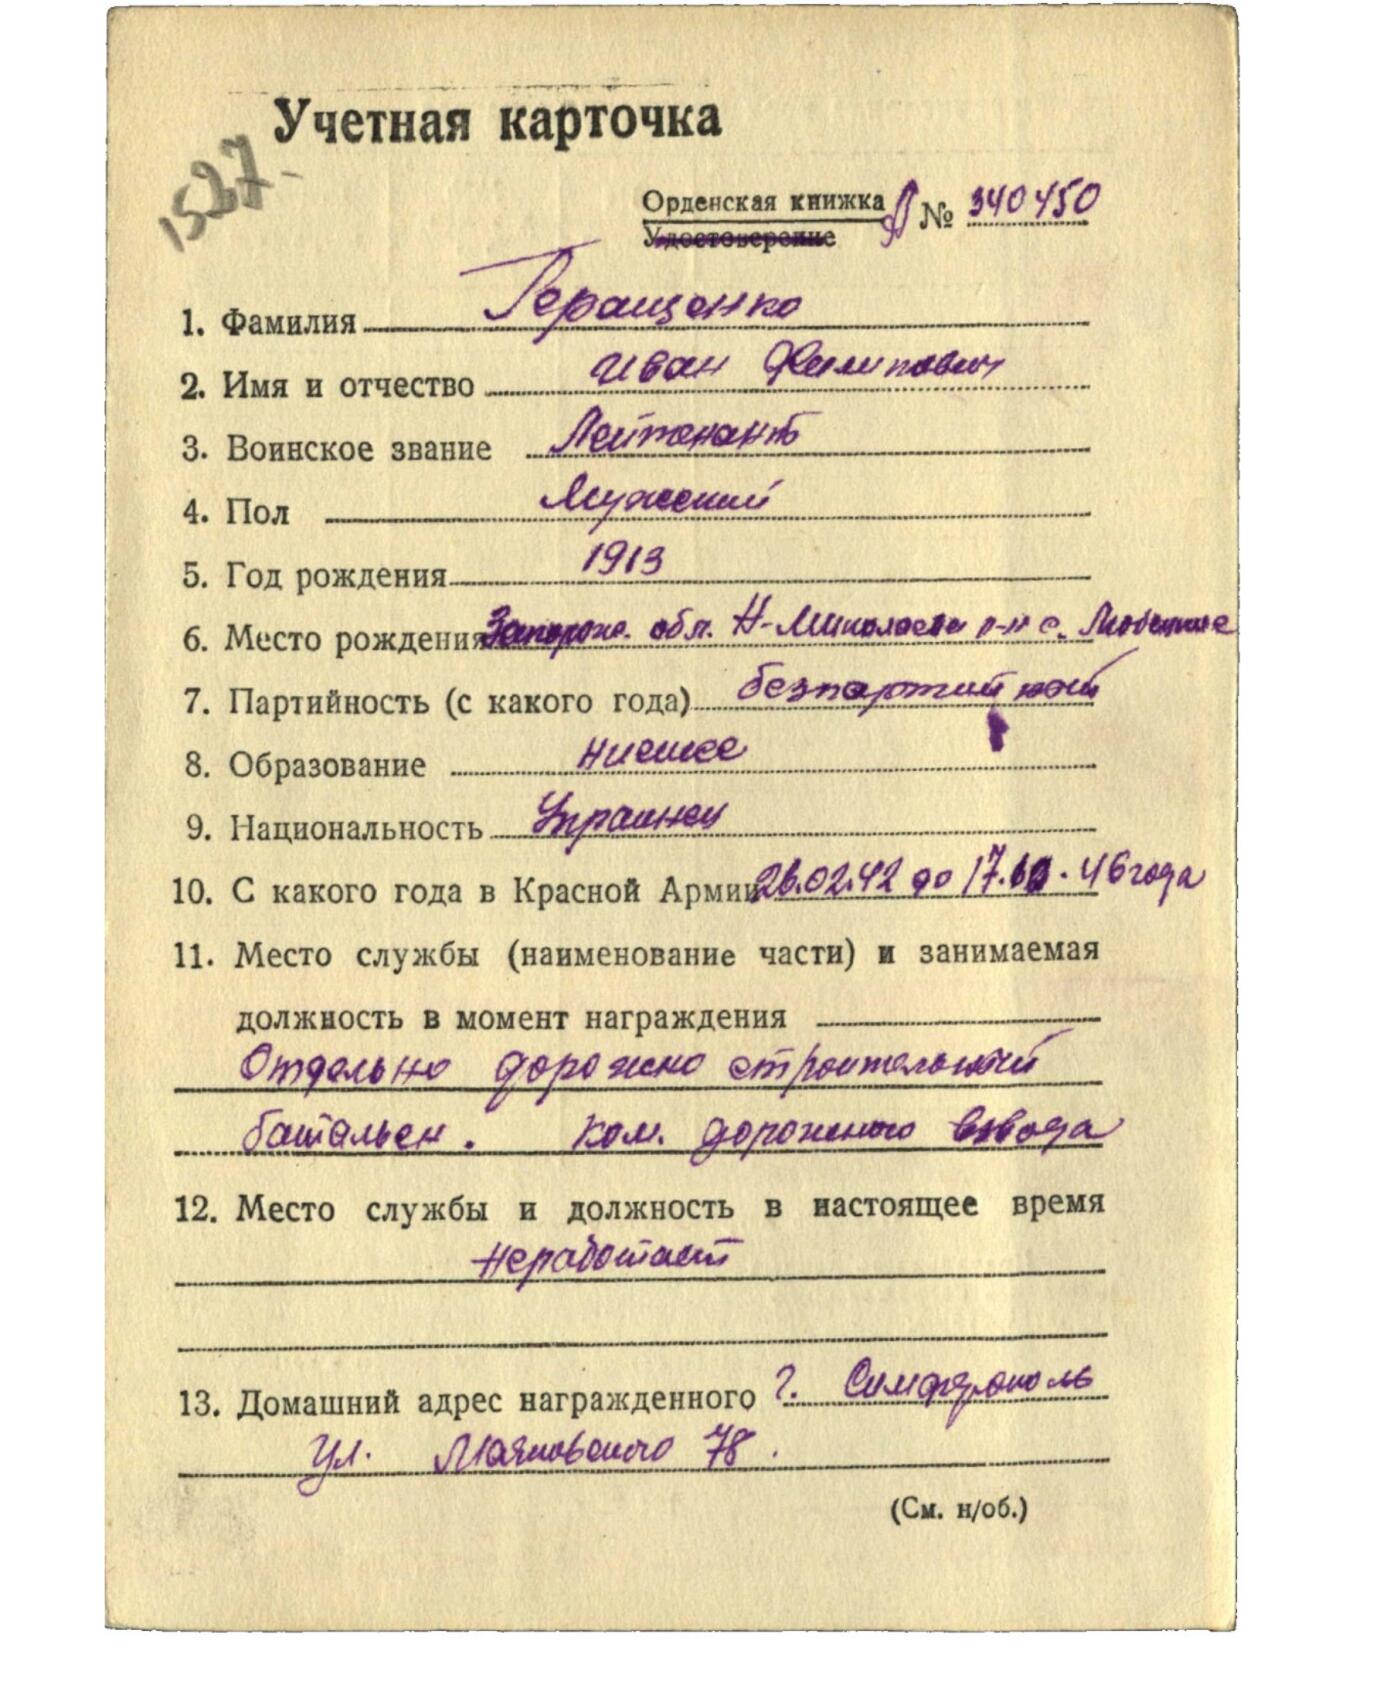 Учетная карточка
1527.-
Орденская книжка
Удостоверение
№ 340450
1. Фамилия Геращенко
2. Имя и отчество Иван Филипович
3. Воинское звание Лейтенант
4. Пол Мужский
5. Год рождения 1913
6. Место рождения Запорож. обл. Н-Миколаевск р-н с.
7. Партийность (с какого года) безпартийный
8. Образование нисшее
9. Национальность Украинец
10. С какого года в Красной Армии 26.02.42 до 17. 46 года
11. Место службы (наименование части) и занимаемая
должность в момент награждения
Отдельно дорожно строительный
батальен. ком. дорожного взвода
12. Место службы и должность в настоящее время
неработает
13. Домашний адрес награжденного г. Симферополь
ул. Маяковского 78.
(См. н/об.)